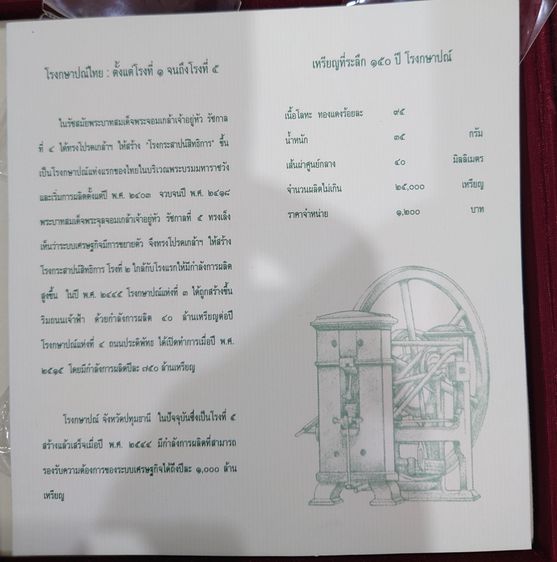 โรงกษาปณ์ไทย : ตั้งแต่โรงที่ ๑ จนถึงโรงที่ ๕
ในรัชสมัยพระบาทสมเด็จพระจอมเกล้าเจ้าอยู่หัว รัชกาล
ที่ ๔ ได้ทรงโปรดเกล้าฯ ให้สร้าง "โรงกระสาปน์สิทธิการ" ขึ้น
เป็นโรงกษาปณ์แห่งแรกของไทยในบริเวณพระบรมมหาราชวัง
และเริ่มการผลิตตั้งแต่ปี พ.ศ. ๒๔๐๓ จวบจนปี พ.ศ. ๒๔๑๘
พระบาทสมเด็จพระจุลจอมเกล้าเจ้าอยู่หัว รัชกาลที่ ๕ ทรงเล็ง
เห็นว่าระบบเศรษฐกิจมีการขยายตัว จึงทรงโปรดเกล้าฯ ให้สร้าง
โรงกระสาปน์สิทธิการ โรงที่ ๒ ใกล้กับโรงแรกให้มีกำลังการผลิต
สูงขึ้น ในปี พ.ศ. ๒๔๔๕ โรงกษาปณ์แห่งที่ ๓ ได้ถูกสร้างขึ้น
ริมถนนเจ้าฟ้า ด้วยกำลังการผลิต ๔๐ ล้านเหรียญต่อปี
โรงกษาปณ์แห่งที่ ๔ ถนนประดิพัทธ ได้เปิดทำการเมื่อปี พ.ศ.
๒๕๑๕ โดยมีกำลังการผลิตปีละ ๗๕๐ ล้านเหรียญ
โรงกษาปณ์ จังหวัดปทุมธานี ในปัจจุบันซึ่งเป็นโรงที่ ๕
สร้างแล้วเสร็จเมื่อปี พ.ศ. ๒๕๔๔ มีกำลังการผลิตที่สามารถ
รองรับความต้องการของระบบเศรษฐกิจได้ถึงปีละ ๑,๐๐๐ ล้าน
เหรียญ
เหรียญที่ระลึก ๑๕๐ ปี โรงกษาปณ์
เนื้อโลหะ ทองแดงร้อยละ ๙๕
น้ำหนัก ๓๕ กรัม
เส้นผ่าศูนย์กลาง ๔๐ มิลลิเมตร
จำนวนผลิตไม่เกิน ๒๕,๐๐๐ เหรียญ
ราคาจำหน่าย ๑,๒๐๐ บาท